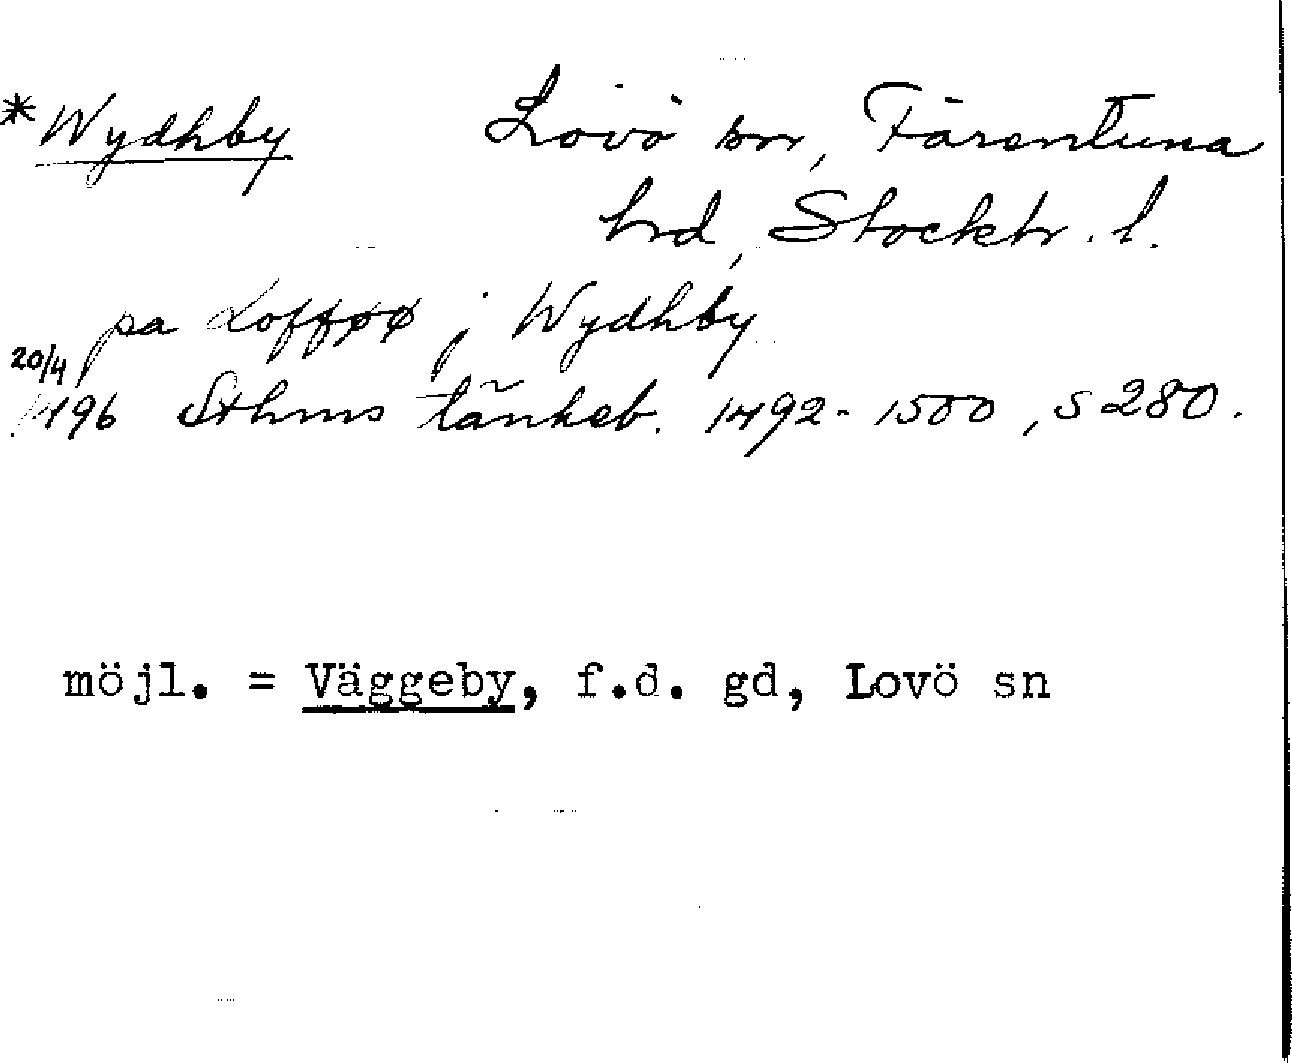 *Wydhby Lovö sn, Färentuna
hrd, Stockh. l.
pa Lofføø j Wydhby
20/4
1496 Sthms tänkeb. 1492-1500, s 280.
möjl. = Väggeby, f.d. gd, Lovö sn